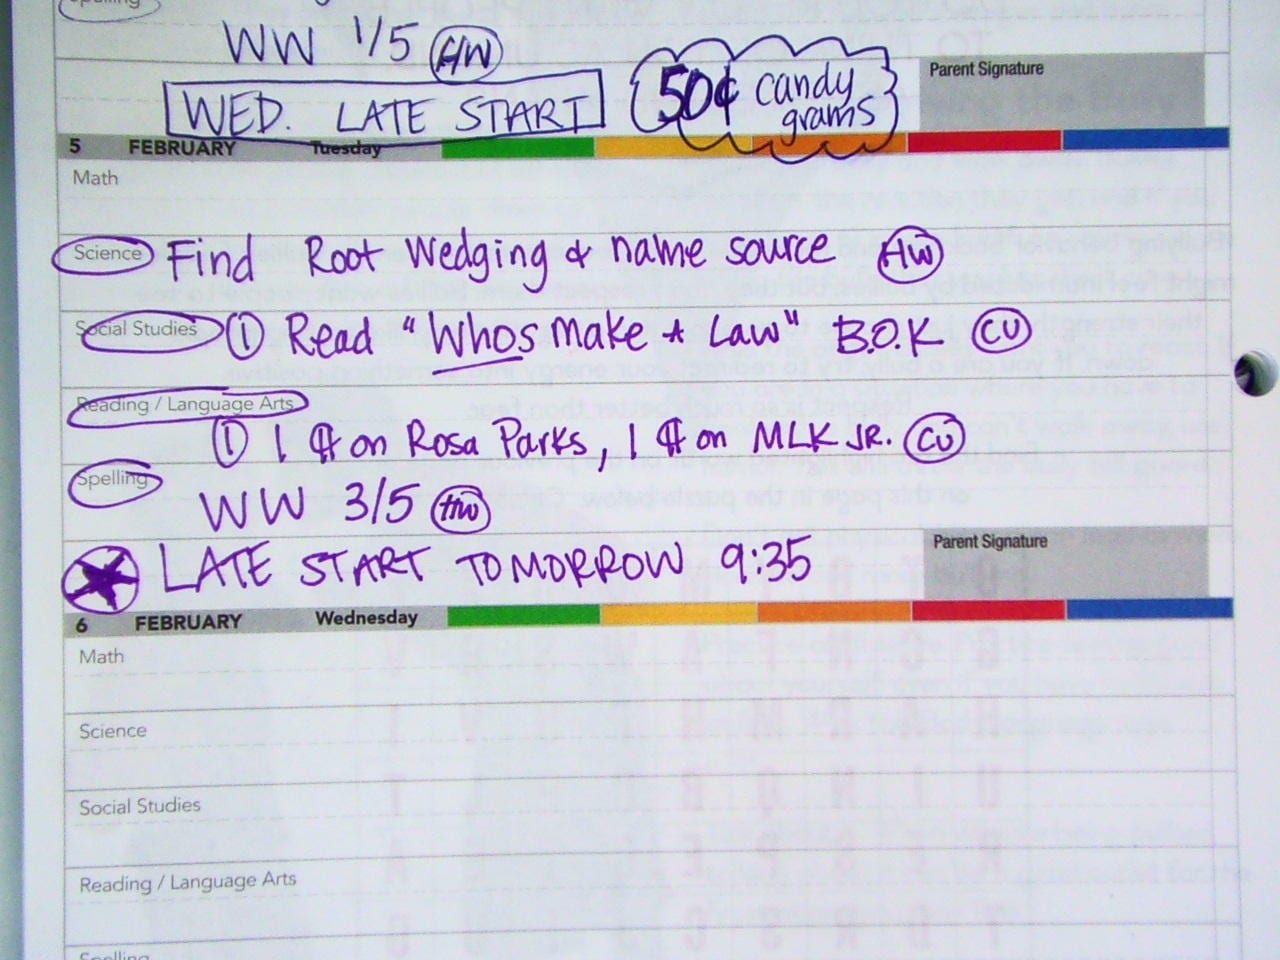 Spelling
WW 1/5 HW
WED. LATE START
50¢ candy grams
Parent Signature
5 FEBRUARY Tuesday
Math
Science Find Root Wedging & name source HW
Social Studies ① Read "Whos Make + Law" B.O.K CU
Reading / Language Arts
① 1 ¶ on Rosa Parks, 1 ¶ on MLK JR. CU
Spelling
WW 3/5 HW
LATE START TOMORROW 9:35
Parent Signature
6 FEBRUARY Wednesday
Math
Science
Social Studies
Reading / Language Arts
Spelling